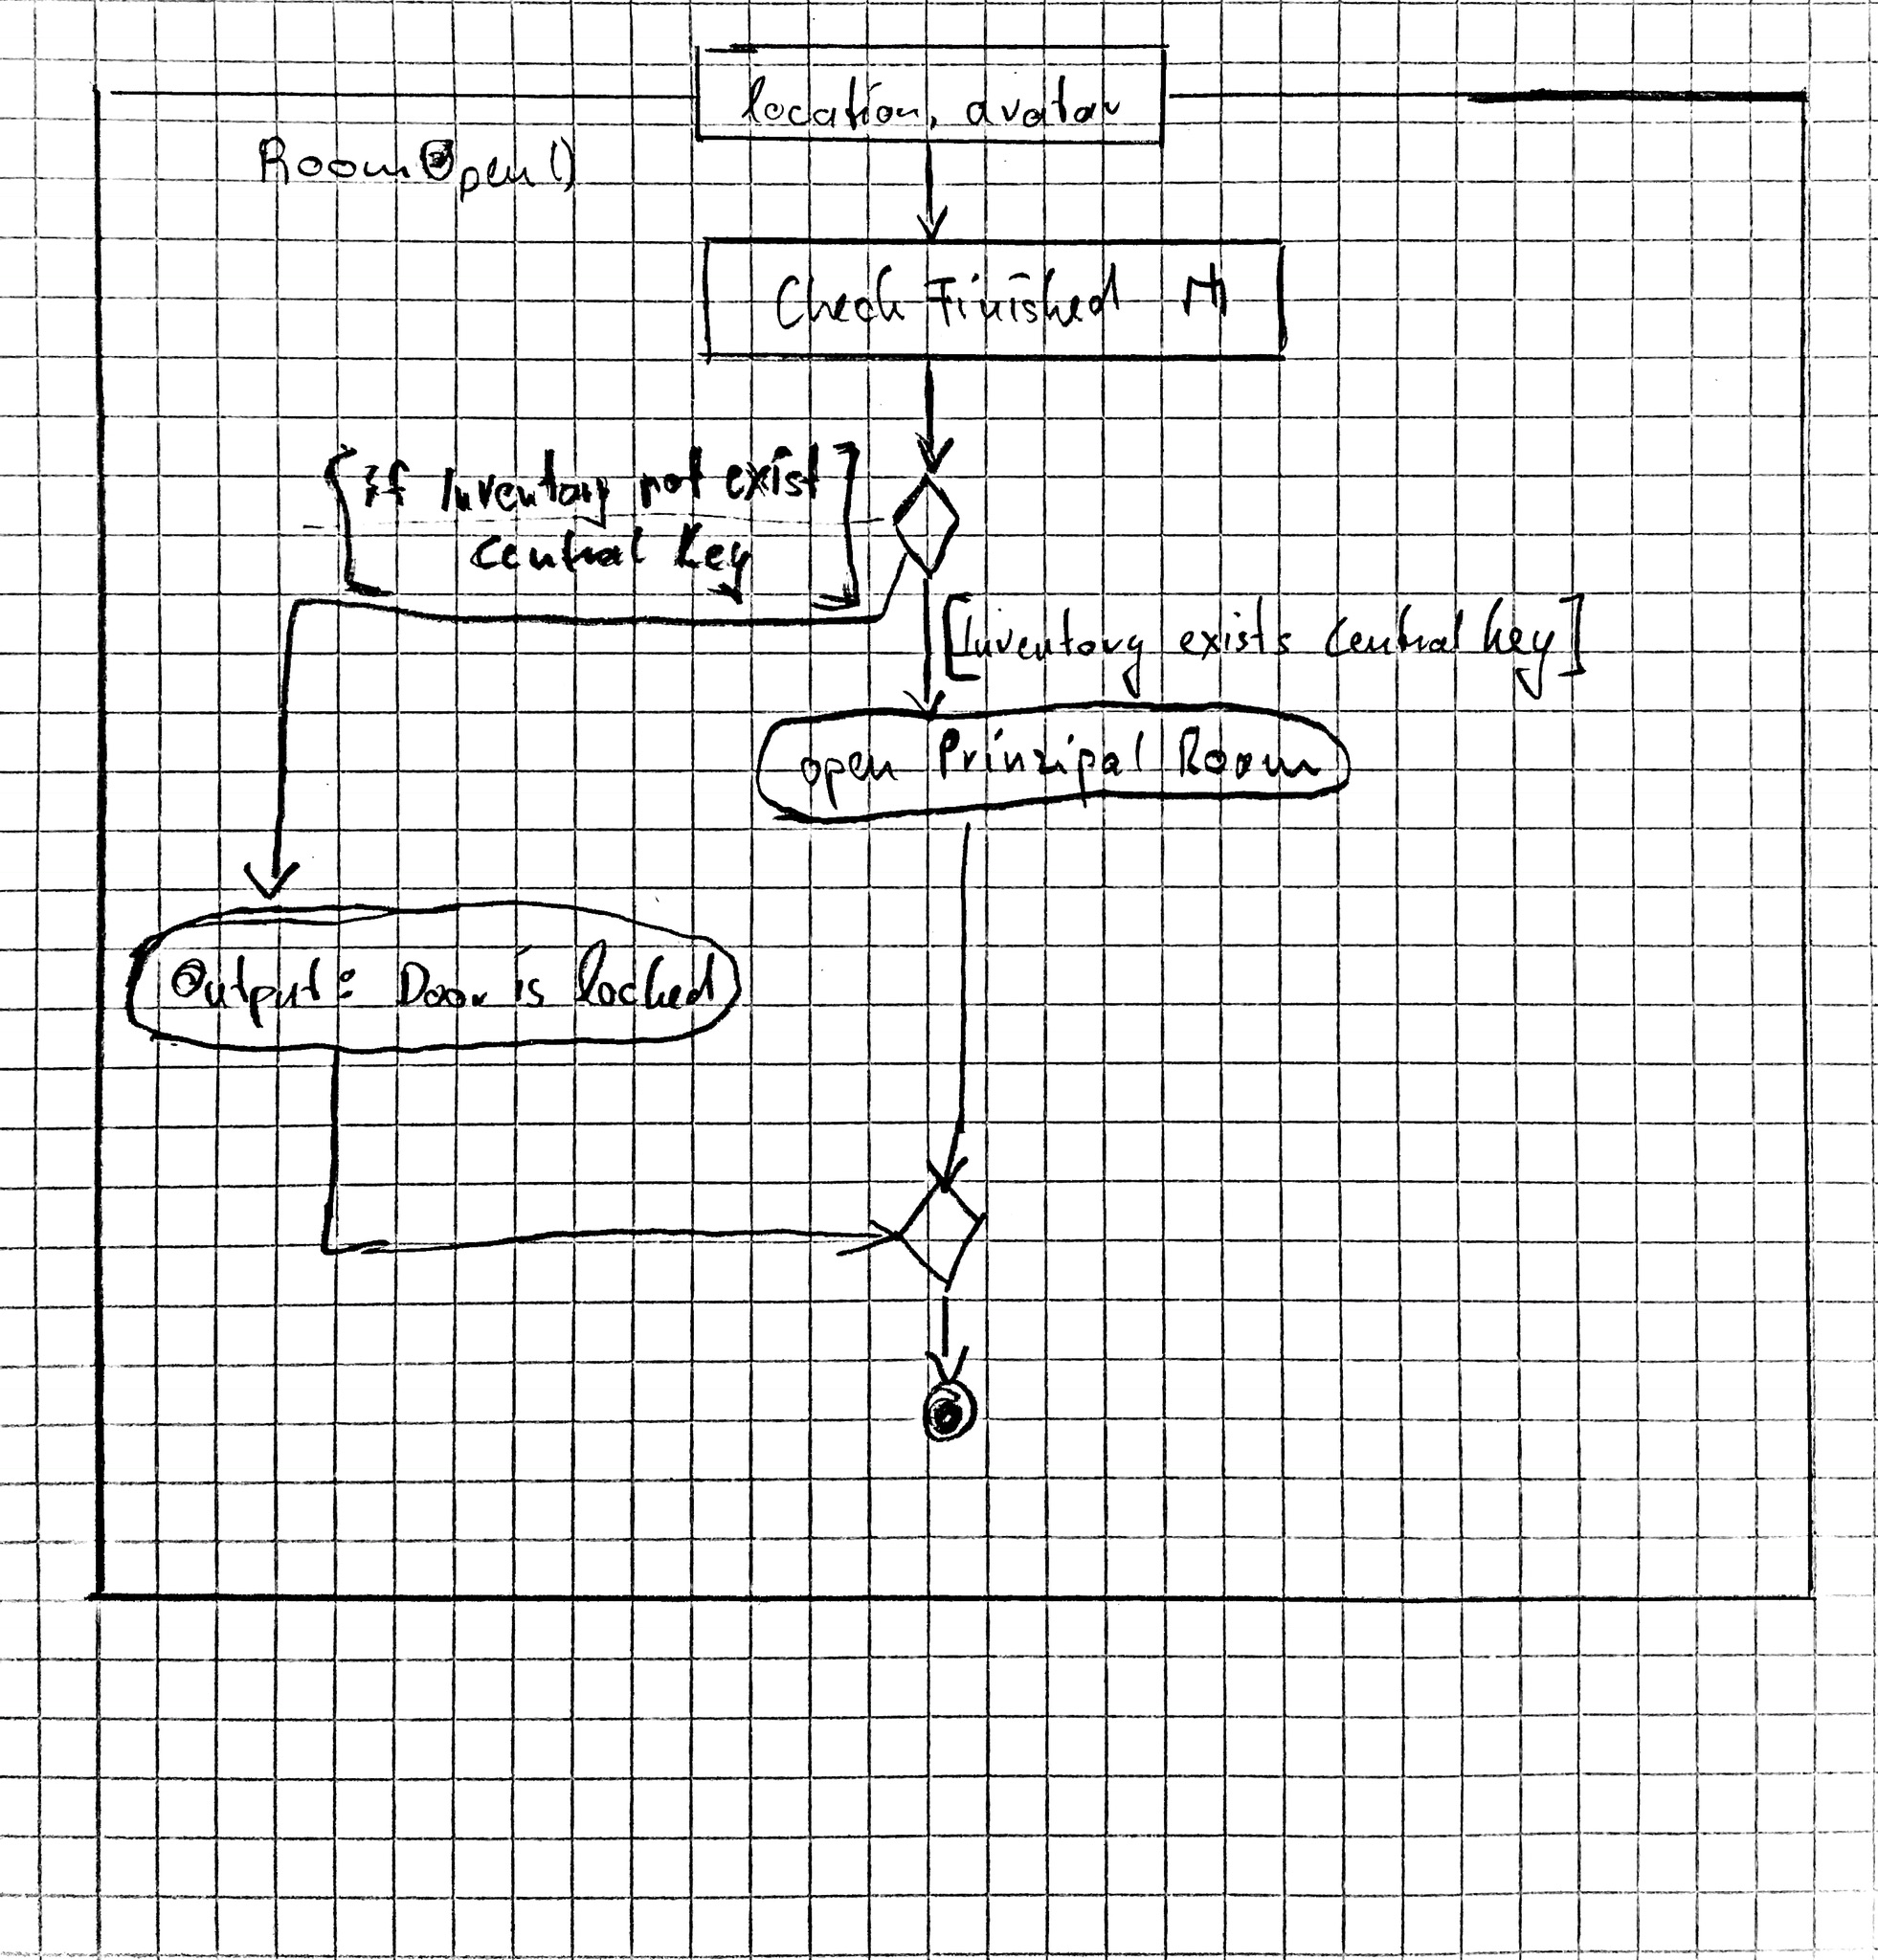 location, avatar
RoomOpen()
Check Finished
[if Inventory not exist
central key]
[Inventory exists central key]
open Prinzipal Room
Output: Door is locked